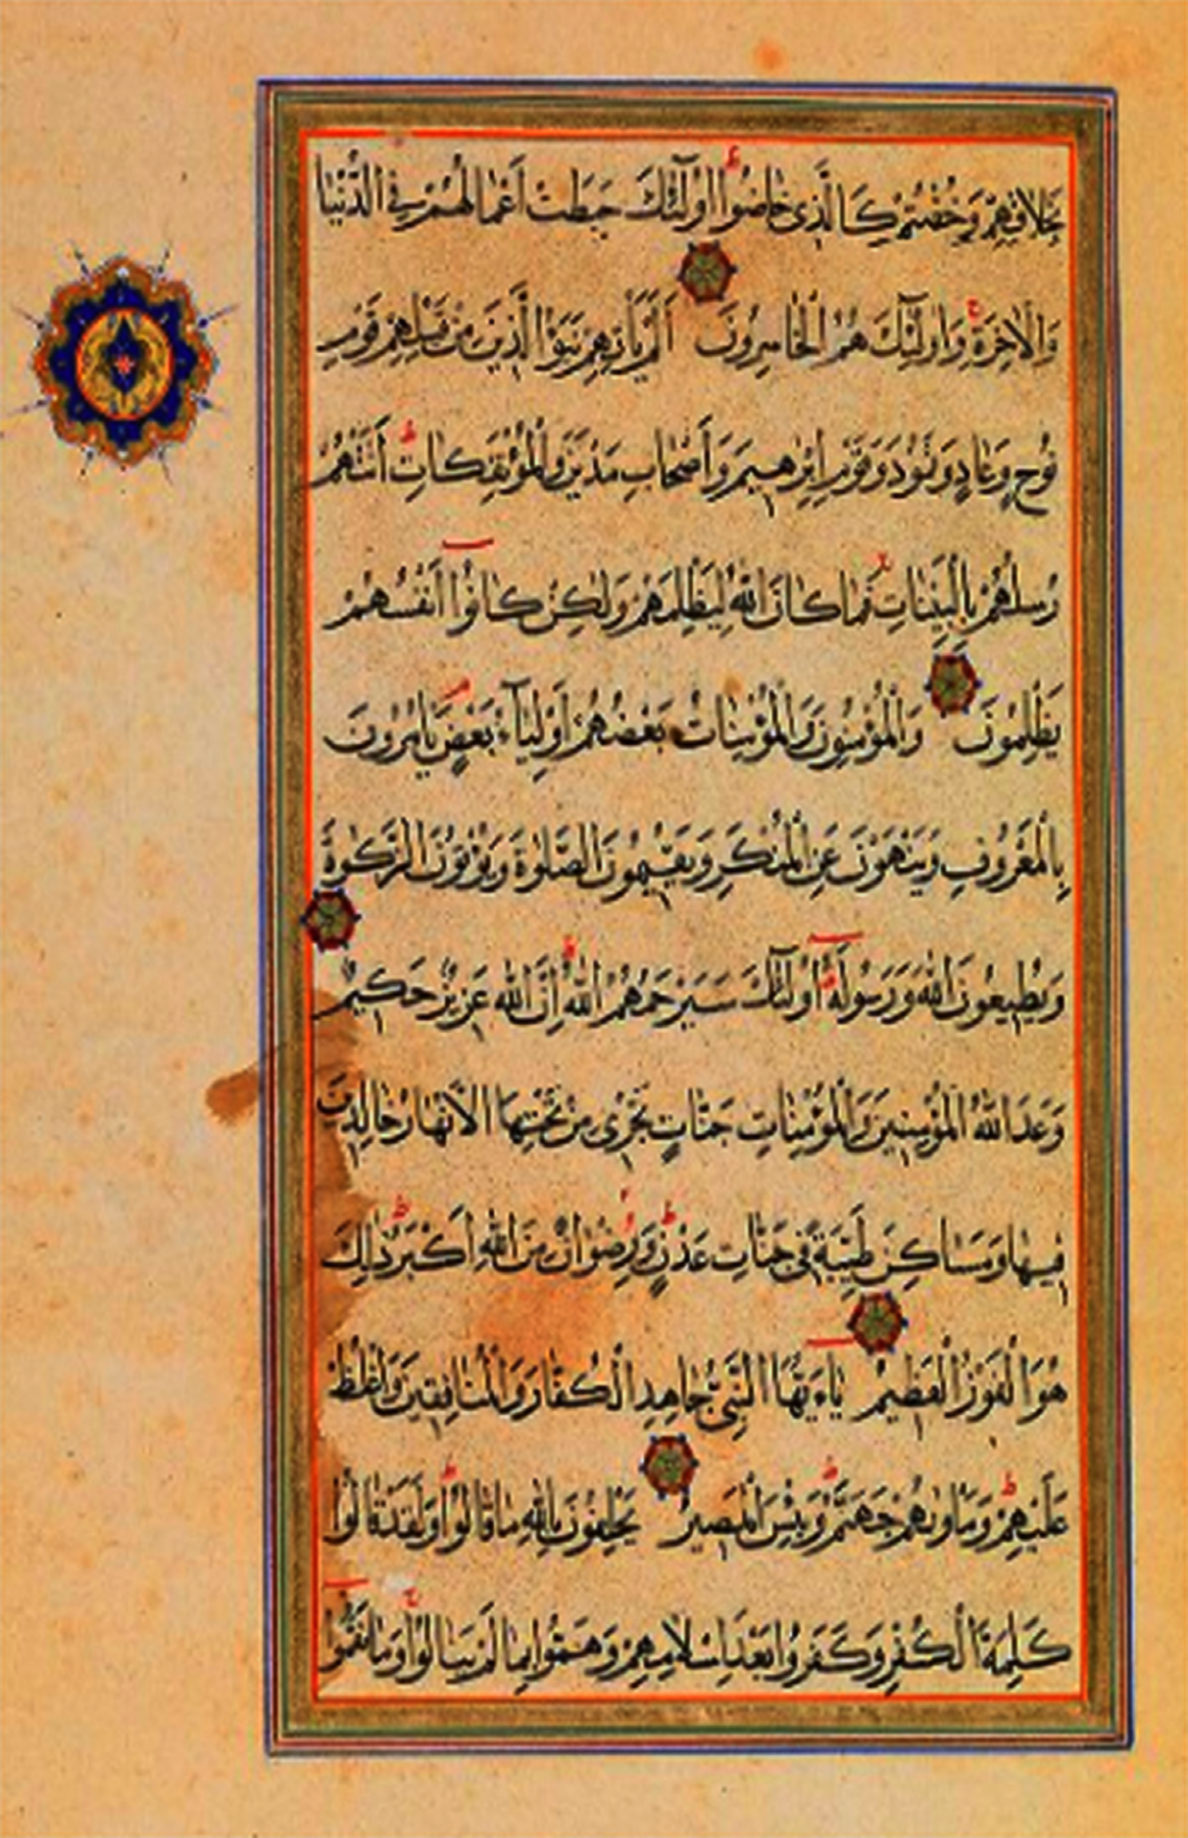 بِخَلَاقِهِمْ وَخُضْتُمْ كَالَّذِي خَاضُوا أُولَٰئِكَ حَبِطَتْ أَعْمَالُهُمْ فِي الدُّنْيَا
وَالْآخِرَةِ وَأُولَٰئِكَ هُمُ الْخَاسِرُونَ أَلَمْ يَأْتِهِمْ نَبَؤُا الَّذِينَ مِنْ قَبْلِهِمْ قَوْمِ
نُوحٍ وَعَادٍ وَثَمُودَ وَقَوْمِ إِبْرَاهِيمَ وَأَصْحَابِ مَدْيَنَ وَالْمُؤْتَفِكَاتِ أَتَتْهُمْ
رُسُلُهُمْ بِالْبَيِّنَاتِ فَمَا كَانَ اللَّهُ لِيَظْلِمَهُمْ وَلَٰكِنْ كَانُوا أَنْفُسَهُمْ
يَظْلِمُونَ وَالْمُؤْمِنُونَ وَالْمُؤْمِنَاتُ بَعْضُهُمْ أَوْلِيَاءُ بَعْضٍ يَأْمُرُونَ
بِالْمَعْرُوفِ وَيَنْهَوْنَ عَنِ الْمُنْكَرِ وَيُقِيمُونَ الصَّلَوٰةَ وَيُؤْتُونَ الزَّكَوٰةَ
وَيُطِيعُونَ اللَّهَ وَرَسُولَهُ أُولَٰئِكَ سَيَرْحَمُهُمُ اللَّهُ إِنَّ اللَّهَ عَزِيزٌ حَكِيمٌ
وَعَدَ اللَّهُ الْمُؤْمِنِينَ وَالْمُؤْمِنَاتِ جَنَّاتٍ تَجْرِي مِنْ تَحْتِهَا الْأَنْهَارُ خَالِدِينَ
فِيهَا وَمَسَاكِنَ طَيِّبَةً فِي جَنَّاتِ عَدْنٍ وَرِضْوَانٌ مِنَ اللَّهِ أَكْبَرُ ذَٰلِكَ
هُوَ الْفَوْزُ الْعَظِيمُ يَاءَيُّهَا النَّبِيُّ جَاهِدِ الْكُفَّارَ وَالْمُنَافِقِينَ وَاغْلُظْ
عَلَيْهِمْ وَمَأْوٰيهُمْ جَهَنَّمُ وَبِئْسَ الْمَصِيرُ يَحْلِفُونَ بِاللَّهِ مَا قَالُوا وَلَقَدْ قَالُوا
كَلِمَةَ الْكُفْرِ وَكَفَرُوا بَعْدَ إِسْلَامِهِمْ وَهَمُّوا بِمَا لَمْ يَنَالُوا وَمَا نَقَمُوا